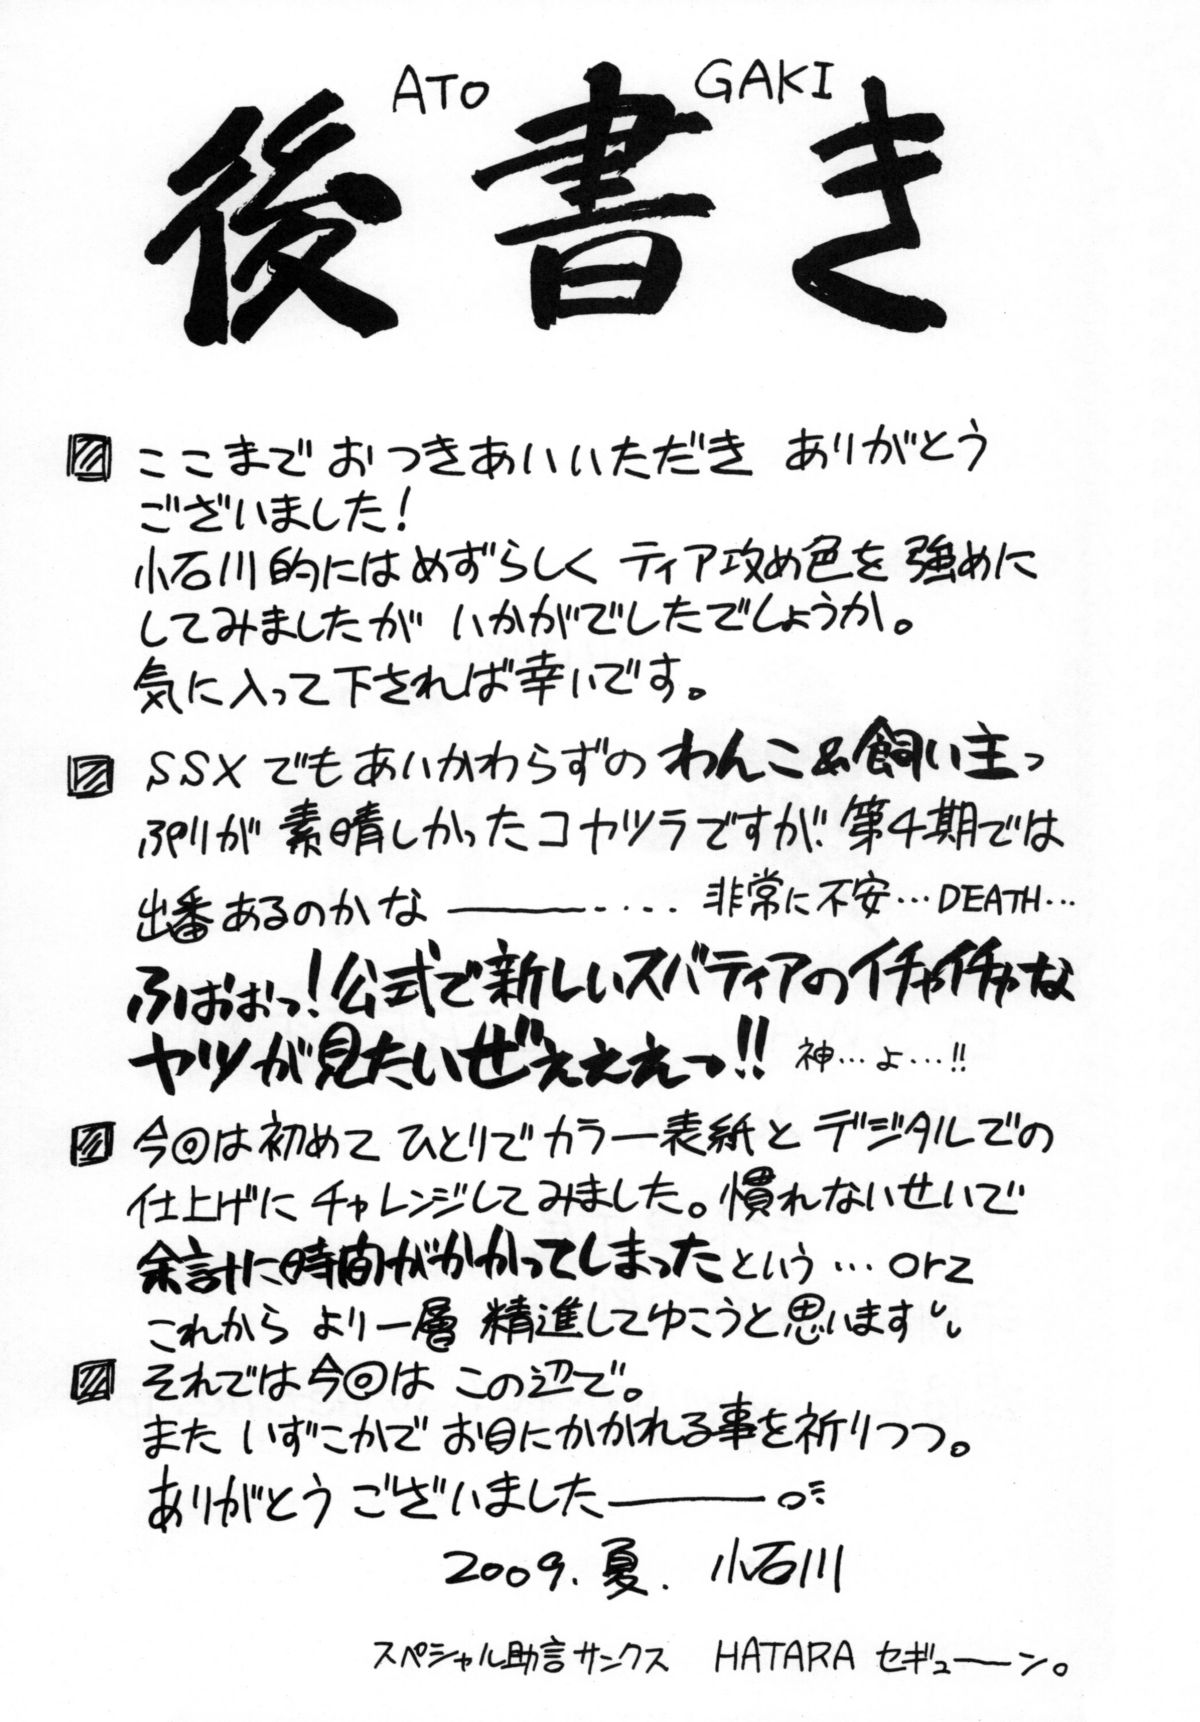 ATO GAKI
後書き
ここまで おつきあいいただき ありがとう
ございました!
小石川的にはめずらしく ティア攻め色を 強めに
してみましたが いかがでしたでしょうか。
気に入って下されば幸いです。
SSXでもあいかわらずの わんこ&飼い主っ
ぷりが 素晴しかったコヤツラですが、第4期では
出番あるのかな ――――-・・・・ 非常に不安…DEATH…
ふおぉぉっ!公式で新しいスバティアのイチャイチャな
ヤツが見たいぜぇぇぇっ!! 神…よ…!!
今回は初めて ひとりでカラー表紙と デジタルでの
仕上げに チャレンジしてみました。慣れないせいで
余計に時間がかかってしまったという…orz
これから より一層 精進してゆこうと思います
それでは今回は この辺で。
また いずこかで お目にかかれる事を祈りつつ。
ありがとう ございました――――
2009.夏. 小石川
スペシャル助言サンクス HATARA セギューーン。